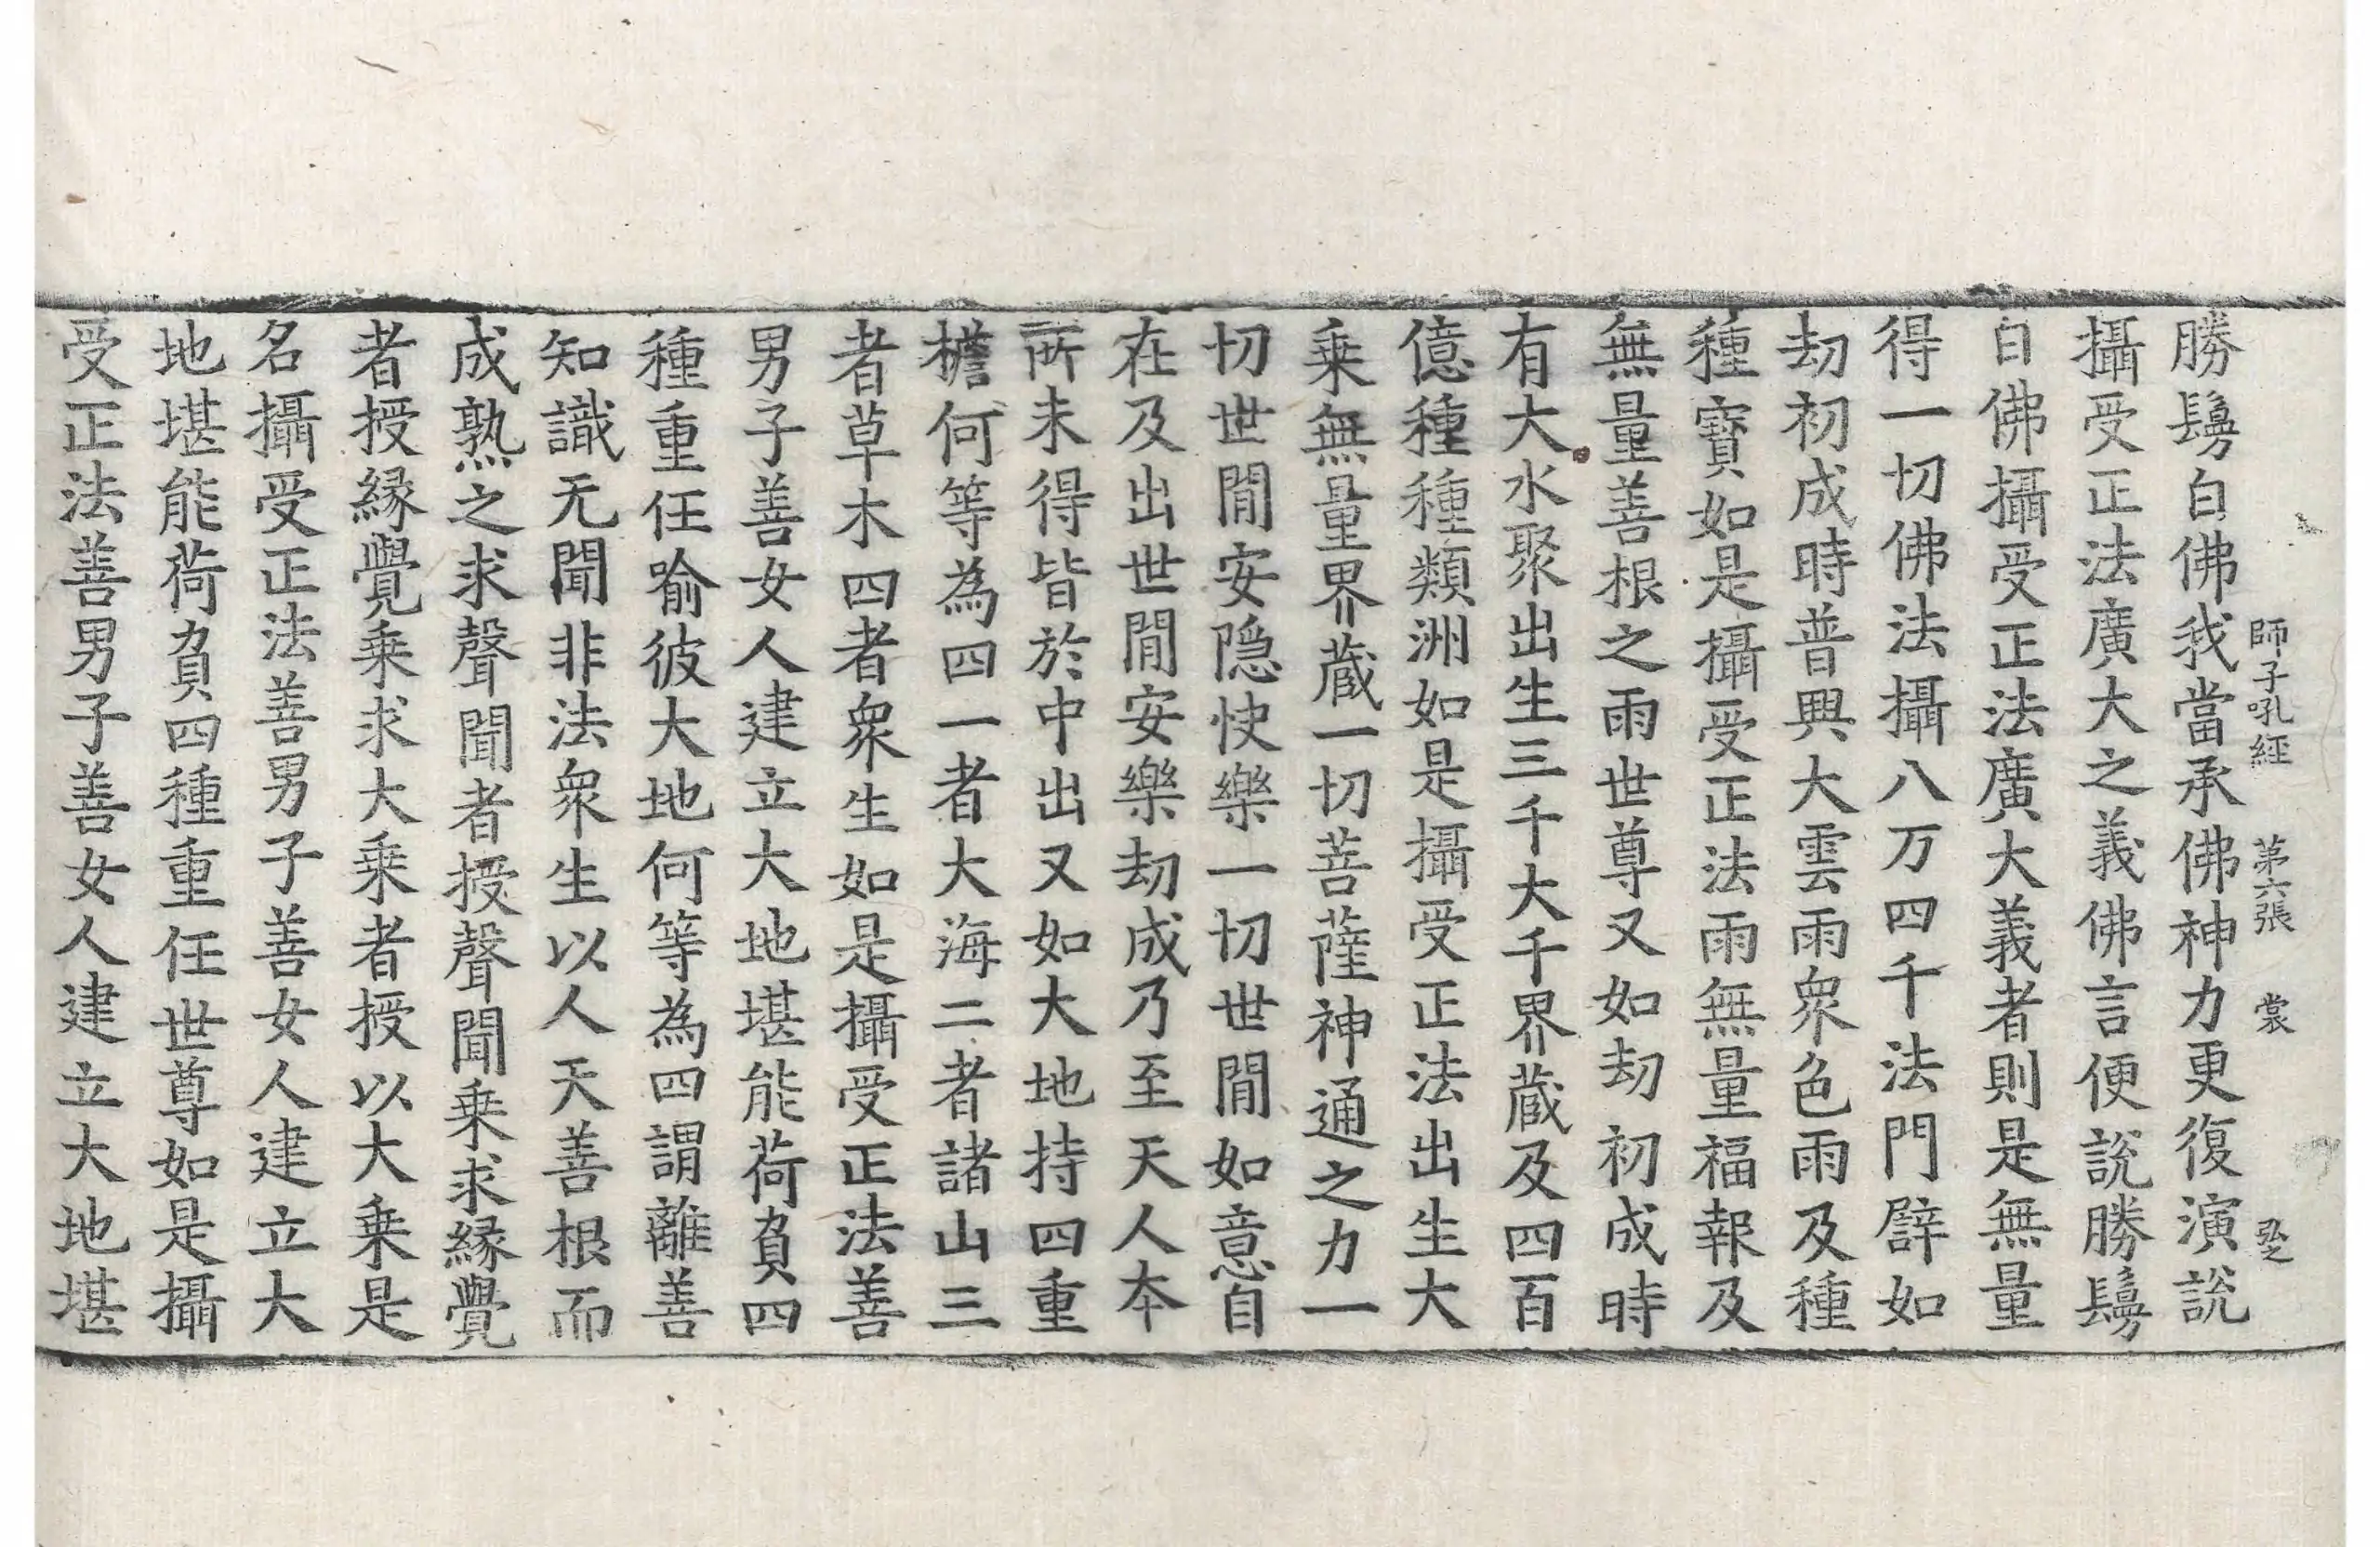 師子吼經 第六張 裳
勝鬘白佛我當承佛神力更復演說
攝受正法廣大之義佛言便說勝鬘
白佛攝受正法廣大義者則是無量
得一切佛法攝八万四千法門譬如
劫初成時普興大雲雨衆色雨及種
種寶如是攝受正法雨無量福報及
無量善根之雨世尊又如劫初成時
有大水聚出生三千大千界蔵及四百
億種種類洲如是攝受正法出生大
乗無量界蔵一切菩薩神通之力一
切世間安隠快樂一切世間如意自
在及出世間安樂劫成乃至天人本
所未得皆於中出又如大地持四重
檐何等為四一者大海二者諸山三
者草木四者衆生如是攝受正法善
男子善女人建立大地堪能荷負四
種重任喻彼大地何等為四謂離善
知識无聞非法衆生以人天善根而
成熟之求聲聞者授聲聞乗求縁覺
者授縁覺乗求大乗者授以大乗是
名攝受正法善男子善女人建立大
地堪能荷負四種重任世尊如是攝
受正法善男子善女人建立大地堪